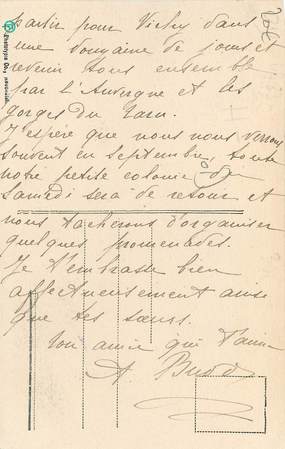 partir pour Vichy dans
une douzaine de jours et
revenir tous ensemble
par l'Auvergne et les
gorges du Tarn.
J'espère que nous nous verrons
souvent en Septembre, toute
notre petite colonie du
Samedi sera de retour et
nous tacherons d'organiser
quelques promenades.
Je t'embrasse bien
affectueusement ainsi
que tes sœurs.
Ton amie qui t'aime
A.